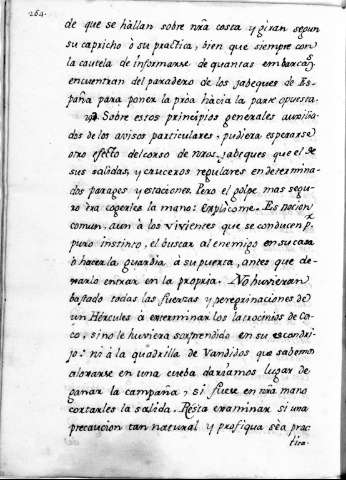 264.
de que se hallan sobre nra costa y giran segun
su capricho ò su practica, bien que siempre con
la cautela de informarse de quantas embarcas
encuentran del paradero de los jabeques de Es-
paña para poner la pròa hàcia la parte opuesta.
Sobre estos principios generales auxilia-
dos de los avisos particulares, pudiera esperarse
otro efecto del corso de nros. jabeques que el de
sus salidas, y cruceros regulares en determina-
dos parages y estaciones. Pero el golpe mas segu-
ro era cogerles la mano: Explicome. Es nocion
comun, aun à los vivientes que se conducen pr.
puro instinto, el buscar al enemigo en su casa
ò hacerle guardia à su puerta, antes que de-
xarlo entrar en la propria. No huvieran
bastado todas las fuerzas y peregrinaciones de
un Hèrcules à exterminar los latrocinios de Ca-
co, sino le huviera sorprendido en su escondri-
jo: ni à la quadrilla de Vandidos que sabemos
alojarse en una cueba darìamos lugar de
ganar la campaña, si fuese en nra mano
cortarles la salida. Resta examinar si una
precaucion tan natural y profiqua sèa prac-
tica.